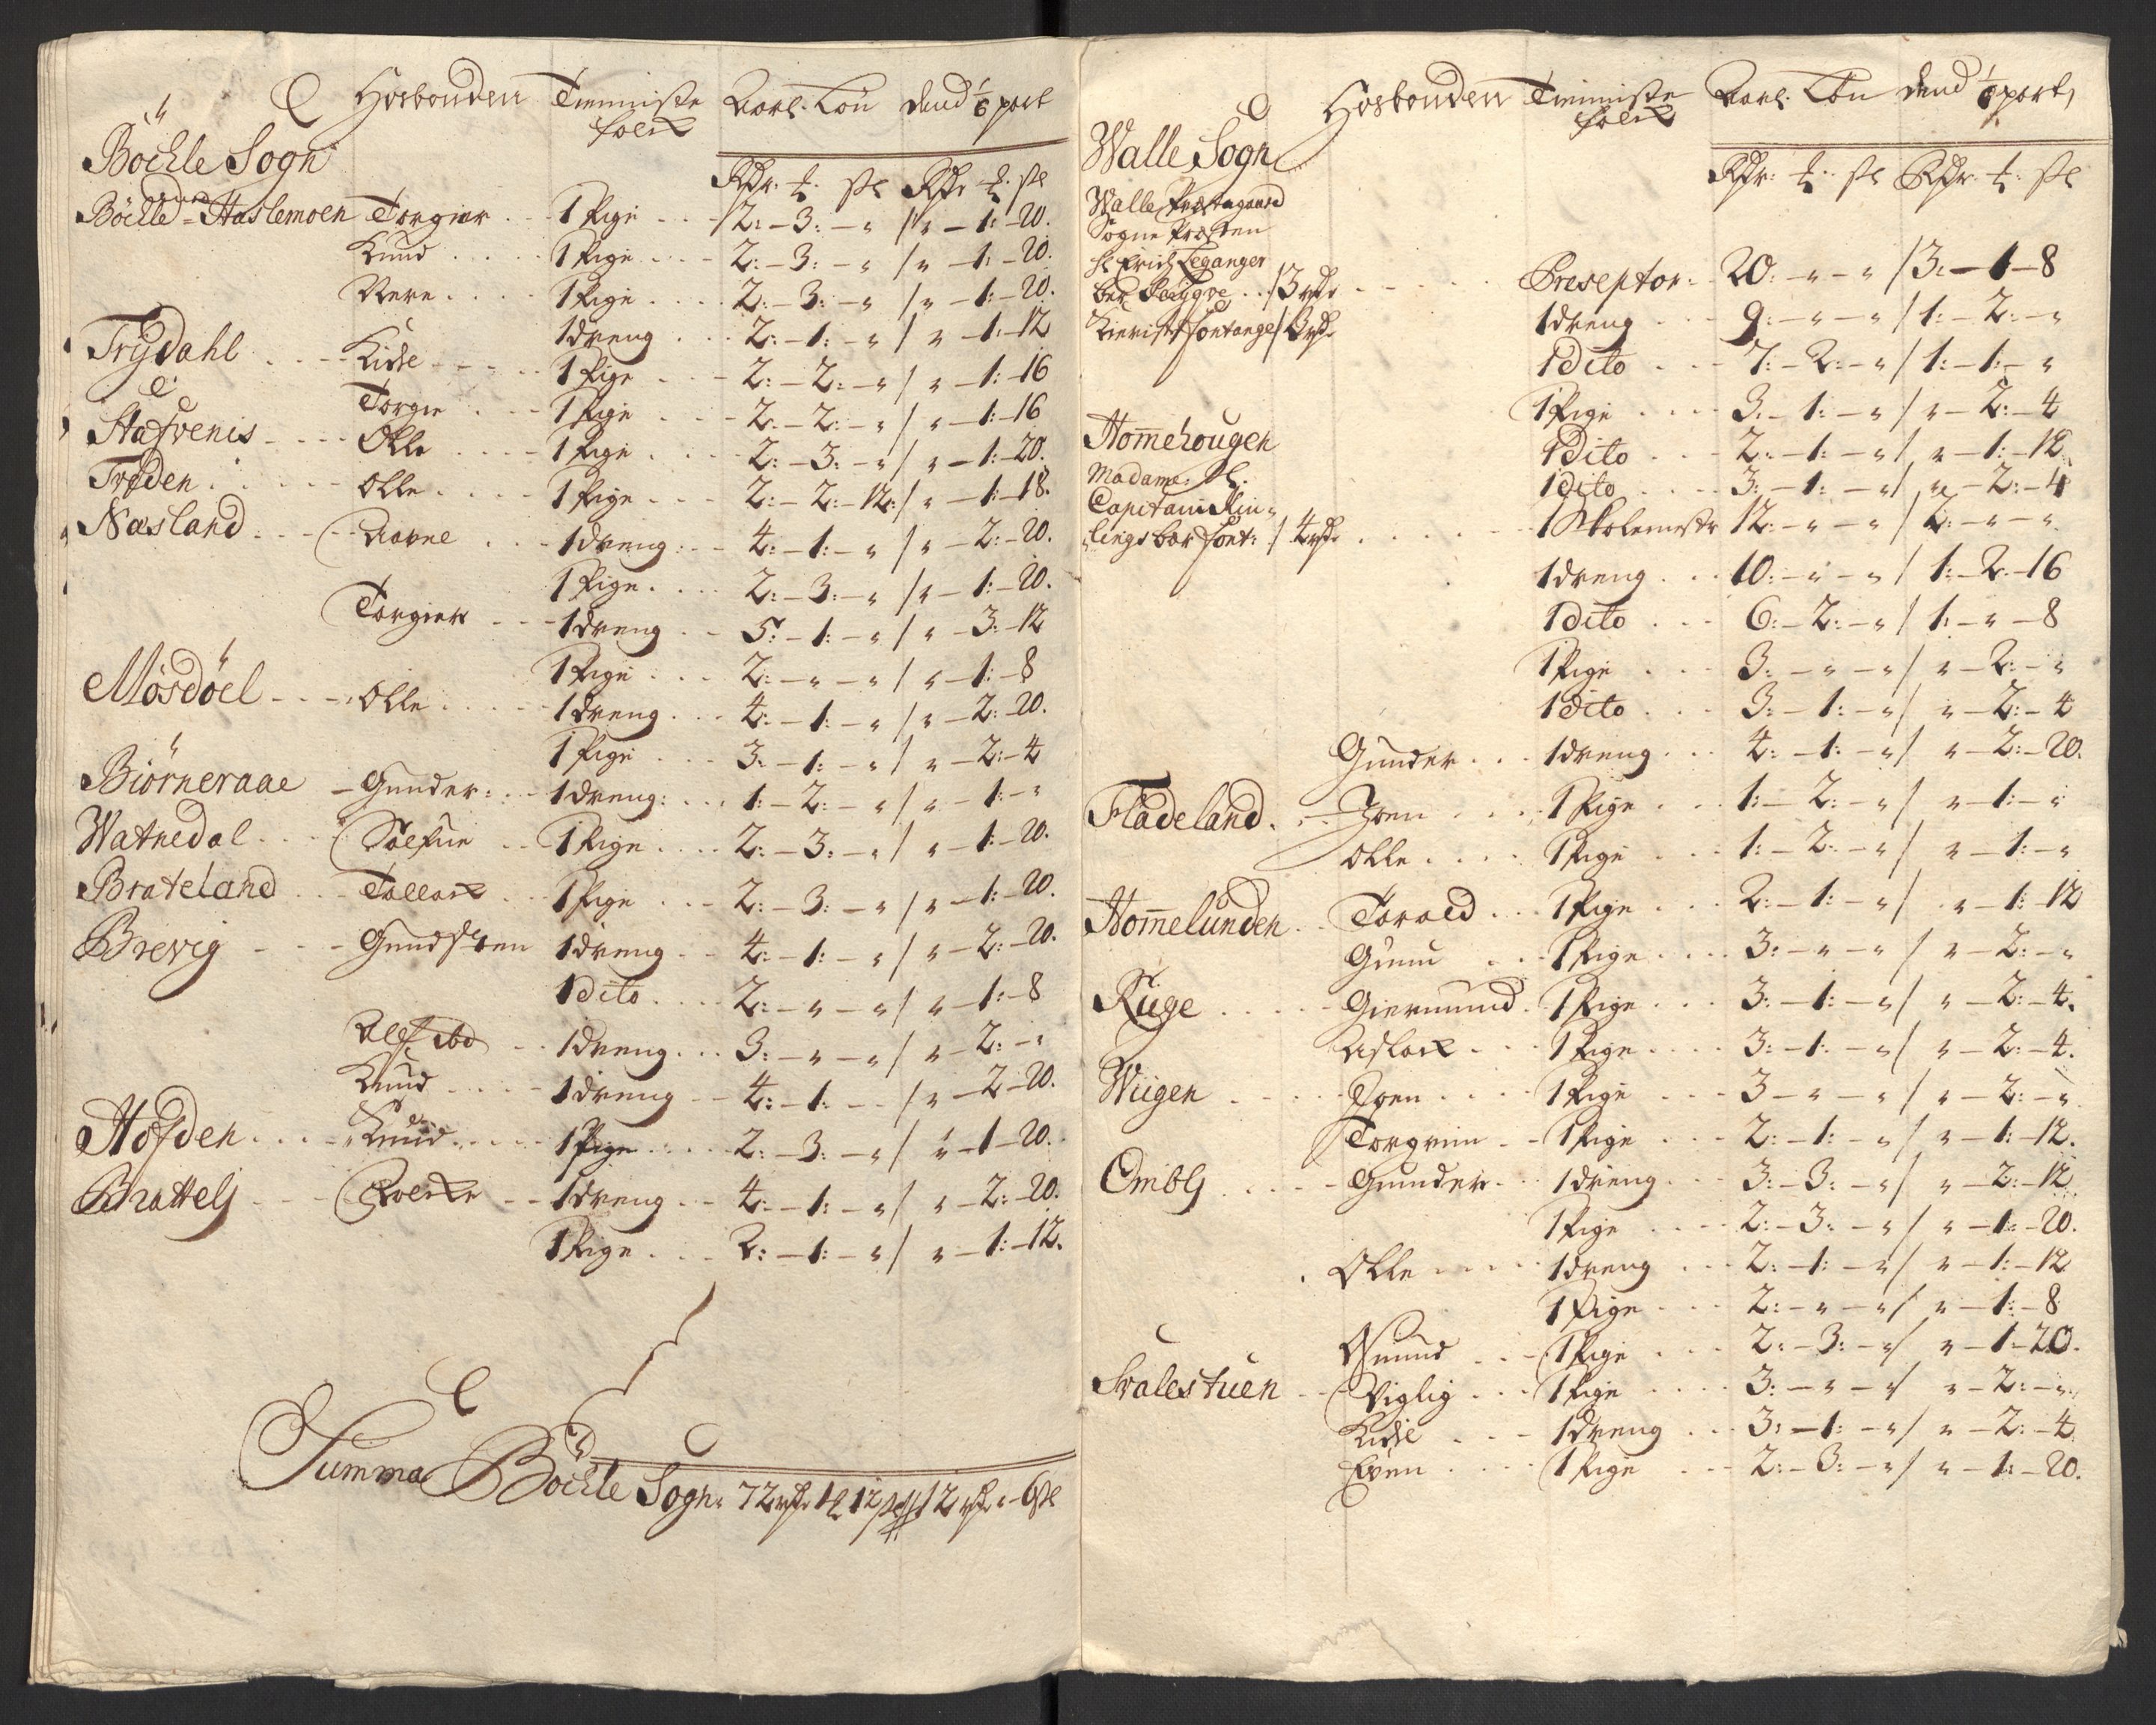 Hosbonden Tiennistefolck Aarl. Løn dend 1/6 part
Böchle Sogn
Rdr. ß Rdr ß
Böchle Haslemoen Torgier 1 Pige 2:-3:-" / "-1:-20.
Knud 1 Pige 2:-3:-" / "-1:-20.
1 Pige 2:-3:-" / "-1:-20.
1 dreng 2:-1:-" / "-1:-12
Trydahl Kidle 1 Pige 2:-2:-" / "-1:-16
Torgie 1 Pige 2:-2:-" / "-1:-16
Stafvenis Olle 1 Pige 2:-3:-" / "-1:-20.
Trøden Olle 1 Pige 2:-2:-12: / "-1:-18.
Næsland Aavne 1 dreng 4:-1:-" / "-2:-20.
1 Pige 2:-3:-" / "-1:-20.
Torgier 1 dreng 5:-1:-" / "-3:-12
1 Pige 2:-"-" / "-1:-8
Møsdöel Olle 1 dreng 4:-1:-" / "-2:-20.
1 Pige 3:-1:-" / "-2:-4
Biörneraae Gunder 1 dreng 1:-2:-" / "-1:-"
Watnedal 1 Pige 2:-3:-" / "-1:-20.
Brateland Tallack 1 Pige 2:-3:-" / "-1:-20.
Brevig Gundsteen 1 dreng 4:-1:-" / "-2:-20.
1 dito 2:-"-" / "-1:-8
1 dreng 3:-"-" / "-2:-"
Knud 1 dreng 4:-1:- / "-2-20.
Hofden Knud 1 Pige 2:-3:-" / "-1-20.
Brattelj 1 dreng 4:-1:-" / "-2:-20.
1 Pige 2:-1:-" / "-1:-12.
Summa Böchle Sogn: 72 rdr 1 12 ß 12 rdr "-6 ß
Hosbonden Tienniste folck Aarl. Løn dend 1/6 part,
Walle Sogn
Rdr: ß Rdr: ß
Walle Prestegaard
Sogne Presten
Hr Erich Leganger
Preseptor 20:-"-" / 3:-1-8
1 dreng 9:-"-" / 1:-2:-"
1 dito 7:-2:-" / 1:-1:-"
1 Pige 3:-1:-" / "-2:-4
Hom̄ehougen
1 Dito 2:-1:-" / "-1:-12
Madame
1 dito 3:-1:-" / "-2:-4
Capitain
1 Skolemestr 12:-"-" / 2:-"-"
1 dreng 10:-"-" / 1:-2-16
1 dito 6:-2:-" / 1:-"-8
1 Pige 3:-"-" / "-2:-"
1 dito 3:-1:-" / "-2:-4
Gunder 1 dreng 4:-1:-" / "-2:-20.
Fladeland Joen 1 Pige 1:-2:-" / "-1:-"
Olle 1 Pige 1:-2:-" / "-1:-"
Hom̄elunden Torald 1 Pige 2:-1:-" / "-1:-12
Gunu 1 Pige 3:-"-" / "-2:-"
Rüge Giermund 1 Pige 3:-1:-" / "-2:-4.
Aslack 1 Pige 3:-1:-" / "-2:-4.
Wiigen Joen 1 Pige 3-"-" / "-2:-"
Torgrim 1 Pige 2:-1:-" / "-1:-12.
Omblj Gunder 1 dreng 3:-3:-" / "-2:-12
1 Pige 2:-3:-" / "-1:-20.
Olle 1 dreng 2:-1:-" / "-1:-12
1 Pige 2:-"-" / "-1:-8
Osmund 1 Pige 2:-3:-" / "-1-20.
Svalestuen Viglig 1 Pige 3:-"-" / "-2:-"
Kidle 1 dreng 3:-1:-" / "-2:-4
Even 1 Pige 2:-3:-" / "-1:-20.